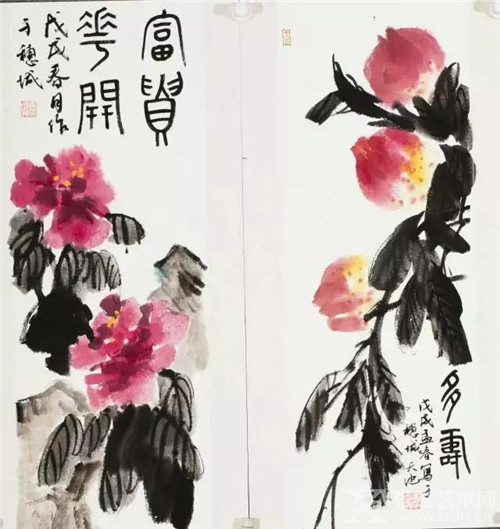 富貴
華開
戊戌春月作
于穗城
多壽
戊戌孟春寫于
穗城天池